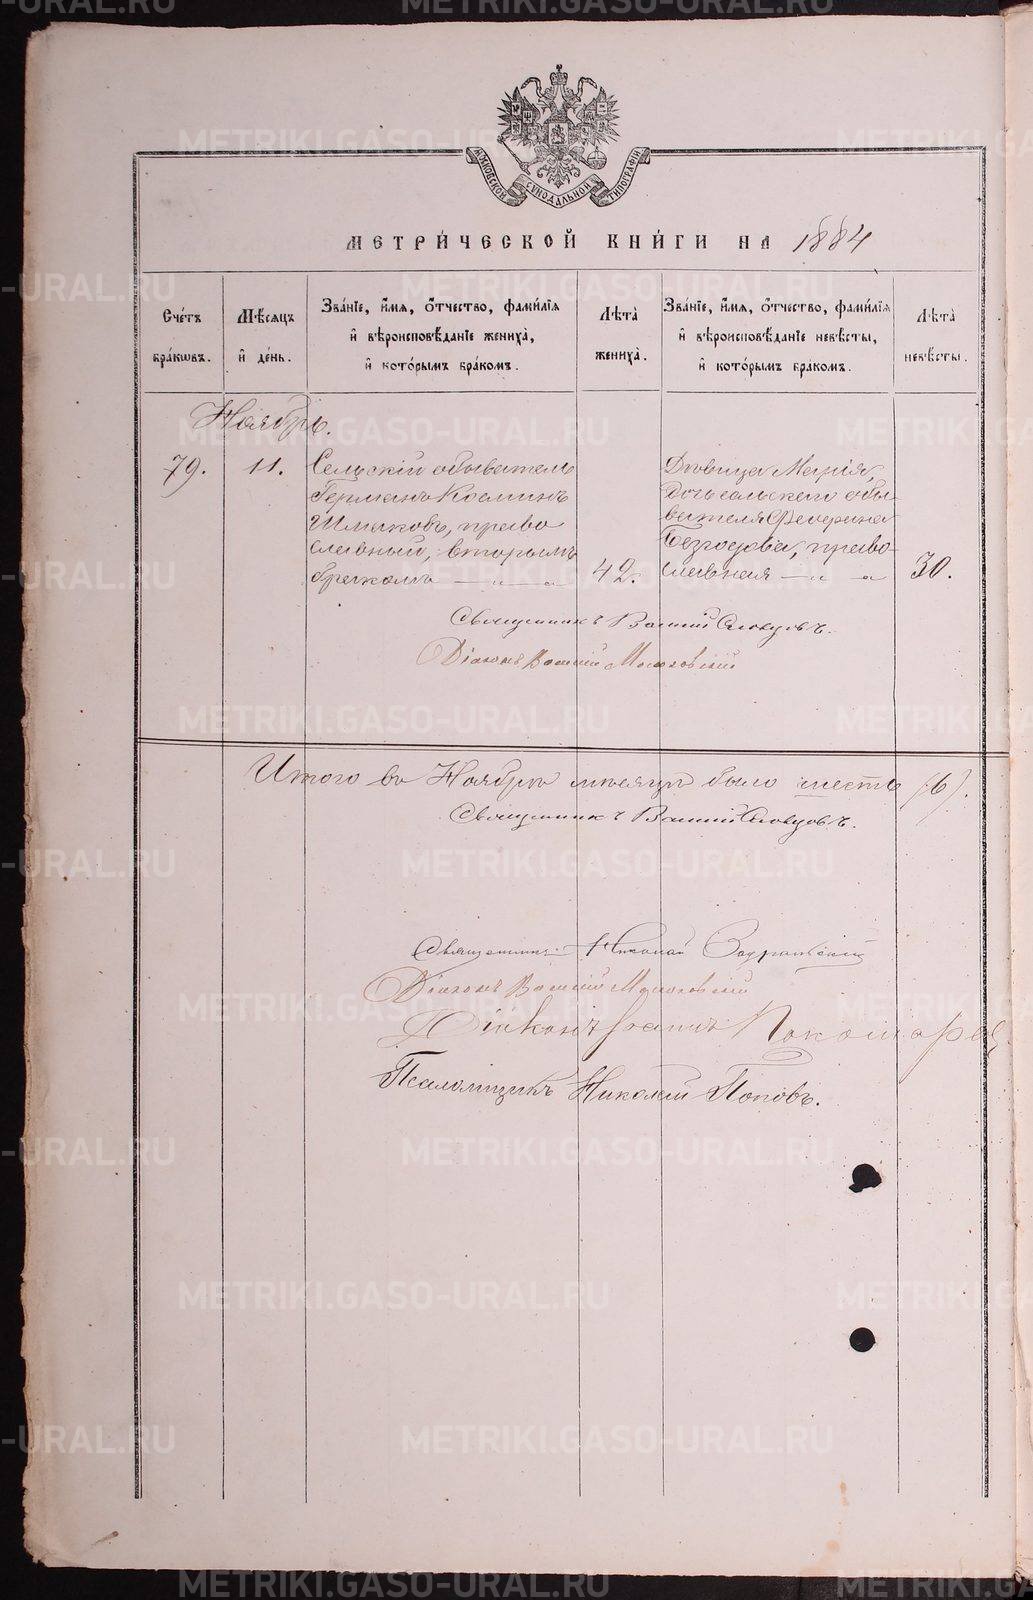 METRIKI.GASO-URAL.RU
МОСКОВСКОЙ СѴНОДАЛЬНОЙ ТИПОГРАФІИ
МЕТРИ́ЧЕСКОЙ КНИ́ГИ НА 1884
Сче́тъ бра́кѡвъ.
Мѣ́сяцъ и҆ де́нь.
Зва́нїе, и҆́мѧ, ѻ҆́тчество, фами́лїѧ и҆ вѣроисповѣ́данїе жениха̀, и҆ кото́рымъ бра́комъ.
Лѣ́та жениха̀.
Зва́нїе, и҆́мѧ, ѻ҆́тчество, фами́лїѧ и҆ вѣроисповѣ́данїе невѣ́сты, и҆ кото́рымъ бра́комъ.
Лѣ́та невѣ́сты.
Ноябрь.
79.
11.
Сельскій обыватель
Германъ Косминъ
Шмаковъ, право
славный, вторымъ
бракомъ — „ — „
42.
Дѣвица Марія,
дочь сельскаго обы-
вателя Северина
Безгодова, право-
славная — „ — „
30.
Священникъ Василій Словцовъ.
Діаконъ Василій
Итого въ Ноябрѣ мѣсяцѣ было шесть (6).
Священникъ Василій Словцовъ.
Священникъ Николай
Діаконъ Василій
Діаконъ
Псаломщикъ Николай Поповъ.